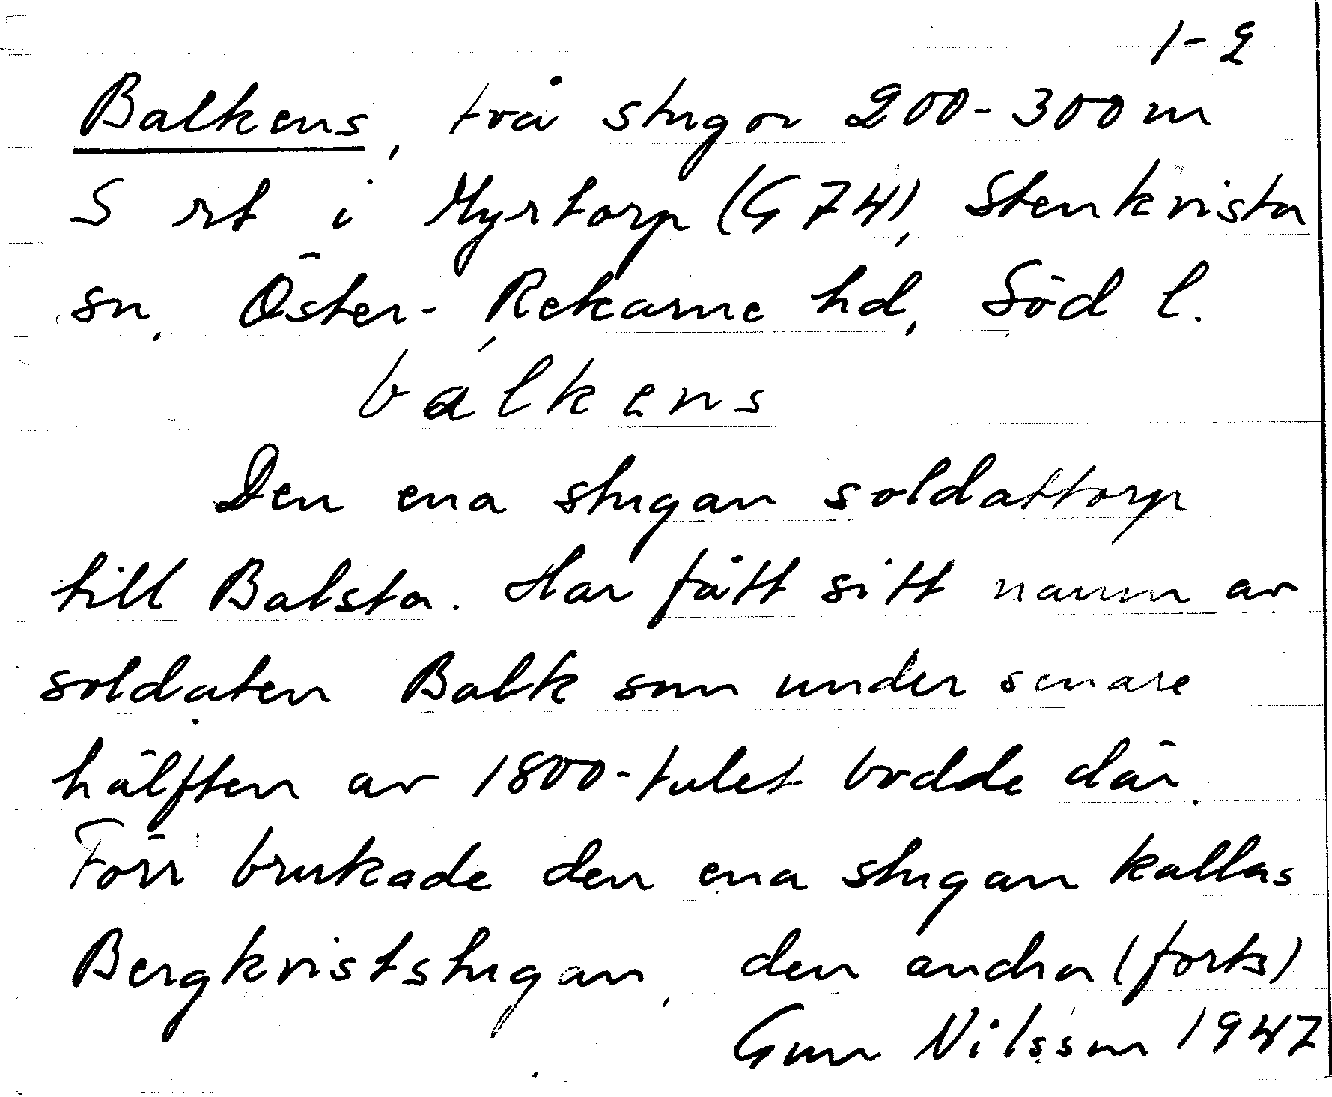 1-2
Balkens, två stugor 200-300 m
S rt i Myrtorp (G 74), Stenkvista
sn, Öster-Rekarne hd, Söd l.
bálkens
Den ena stugan soldattorp
till Balsta. Har fått sitt namn av
soldaten Balk som under senare
hälften av 1800-talet bodde där.
Förr brukade den ena stugan kallas
Bergkviststugan, den andra (forts)
Gun Nilsson 1947